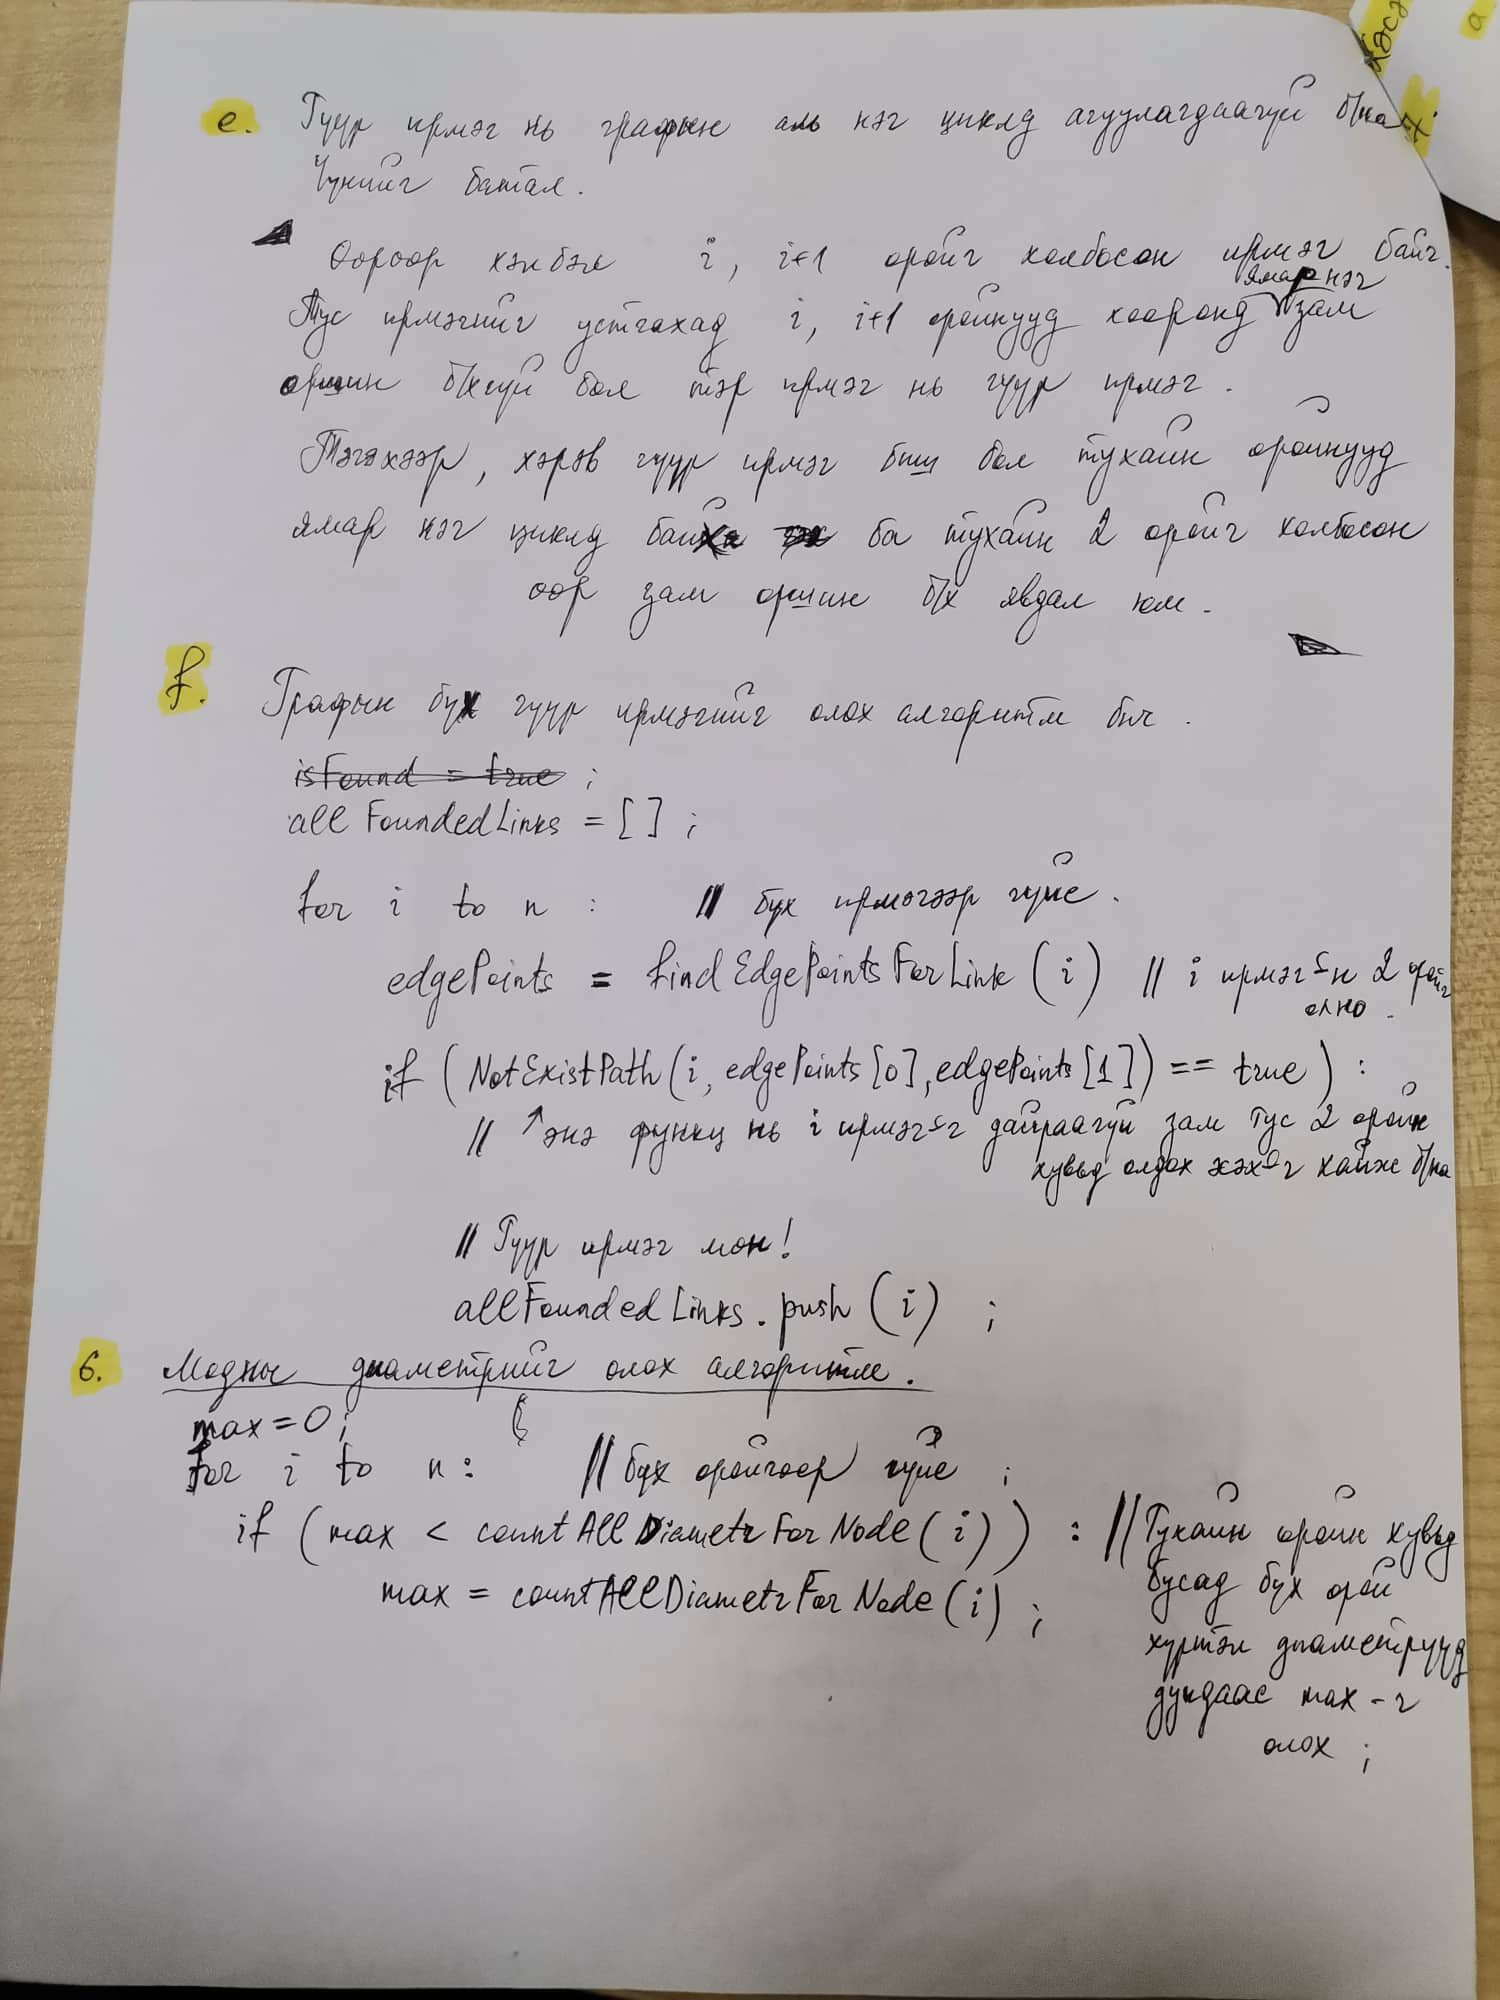 e. Гүүр ирмэг нь графын аль нэг циклд агуулагдаагүй б/на
Үүнийг батал.
Өөрөөр хэлбэл i, i+1 оройг холбосон ирмэг байг.
ямар нэг
Тус ирмэгийг устгахад i, i+1 оройнууд хооронд зам
оршин б/хгүй бол тэр ирмэг нь гүүр ирмэг.
Тэгэхээр, хэрэв гүүр ирмэг биш бол тухайн оройнууд
ямар нэг циклд байх ба тухайн 2 оройг холбосон
өөр зам оршин б/х явдал юм.
f. Графын бүх гүүр ирмэгийг олох алгоритм бич.
isFound = true ;
allFoundedLinks = [ ] ;
for i to n : // бүх ирмэгээр гүйе.
edgePoints = findEdgePointsForLink (i) // i ирмэг-н 2 оройг
олно.
if (NotExistPath(i, edgePoints[0], edgePoints[1]) == true ) :
// ↑ энэ функц нь i ирмэг-г дайраагүй зам тус 2 оройн
хувьд олдох эсэх-г хайж б/на
// Гүүр ирмэг мөн!
allFoundedLinks.push (i) ;
6. Модны диаметрийг олох алгоритм.
max = 0;
for i to n: // бүх оройгоор гүйе ;
if (max < countAllDiametrForNode (i) ) : // Тухайн оройн хувьд
max = countAllDiametrForNode (i) ; бусад бүх орой
хүртэл диаметрүүд
дундаас max-г
олох ;